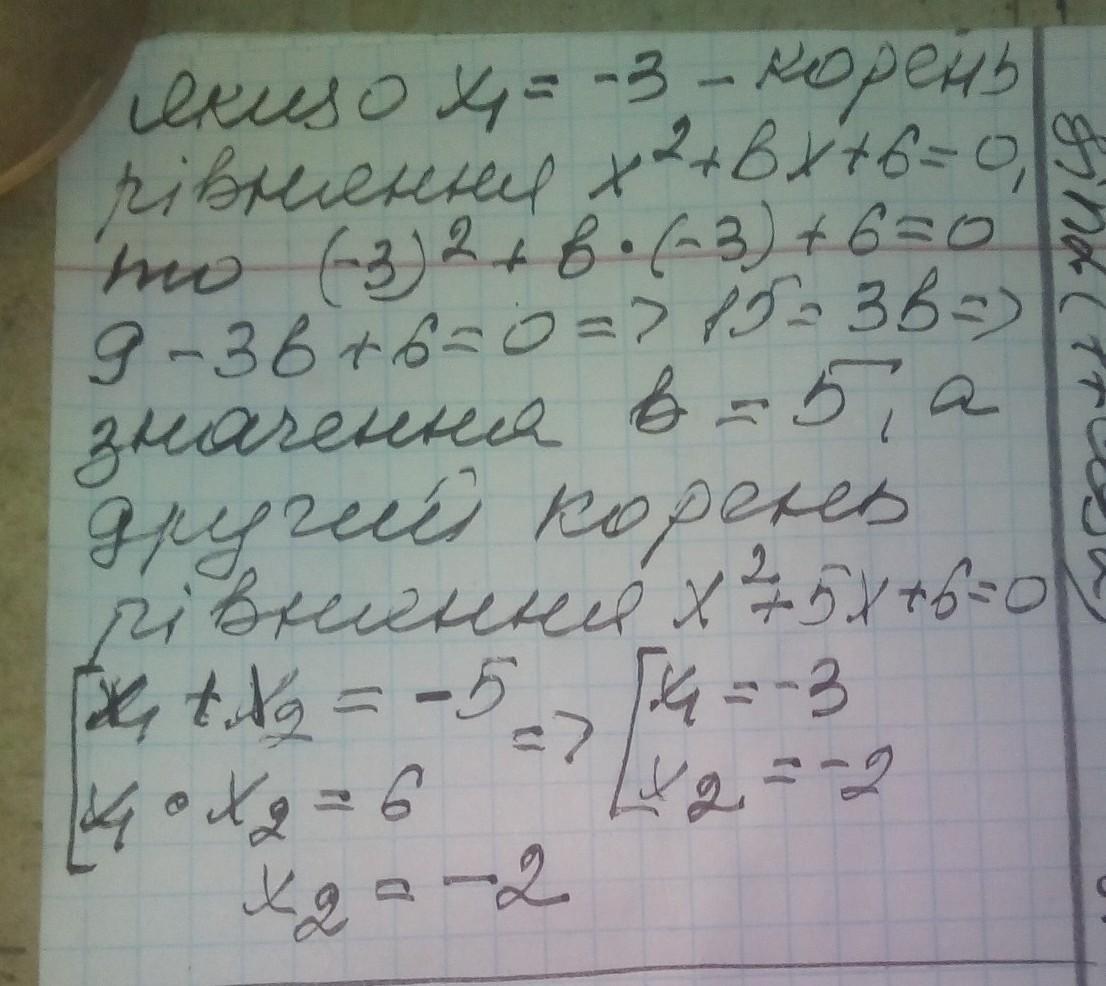 якщо x₁ = -3 - корень
рівняння x² + вx + 6 = 0,
то (-3)² + в · (-3) + 6 = 0
9 - 3в + 6 = 0 => 15 = 3в =>
значення в = 5, а
другий корень
рівняння x² + 5x + 6 = 0
[x₁ + x₂ = -5 => [x₁ = -3
x₁ · x₂ = 6 x₂ = -2
x₂ = -2